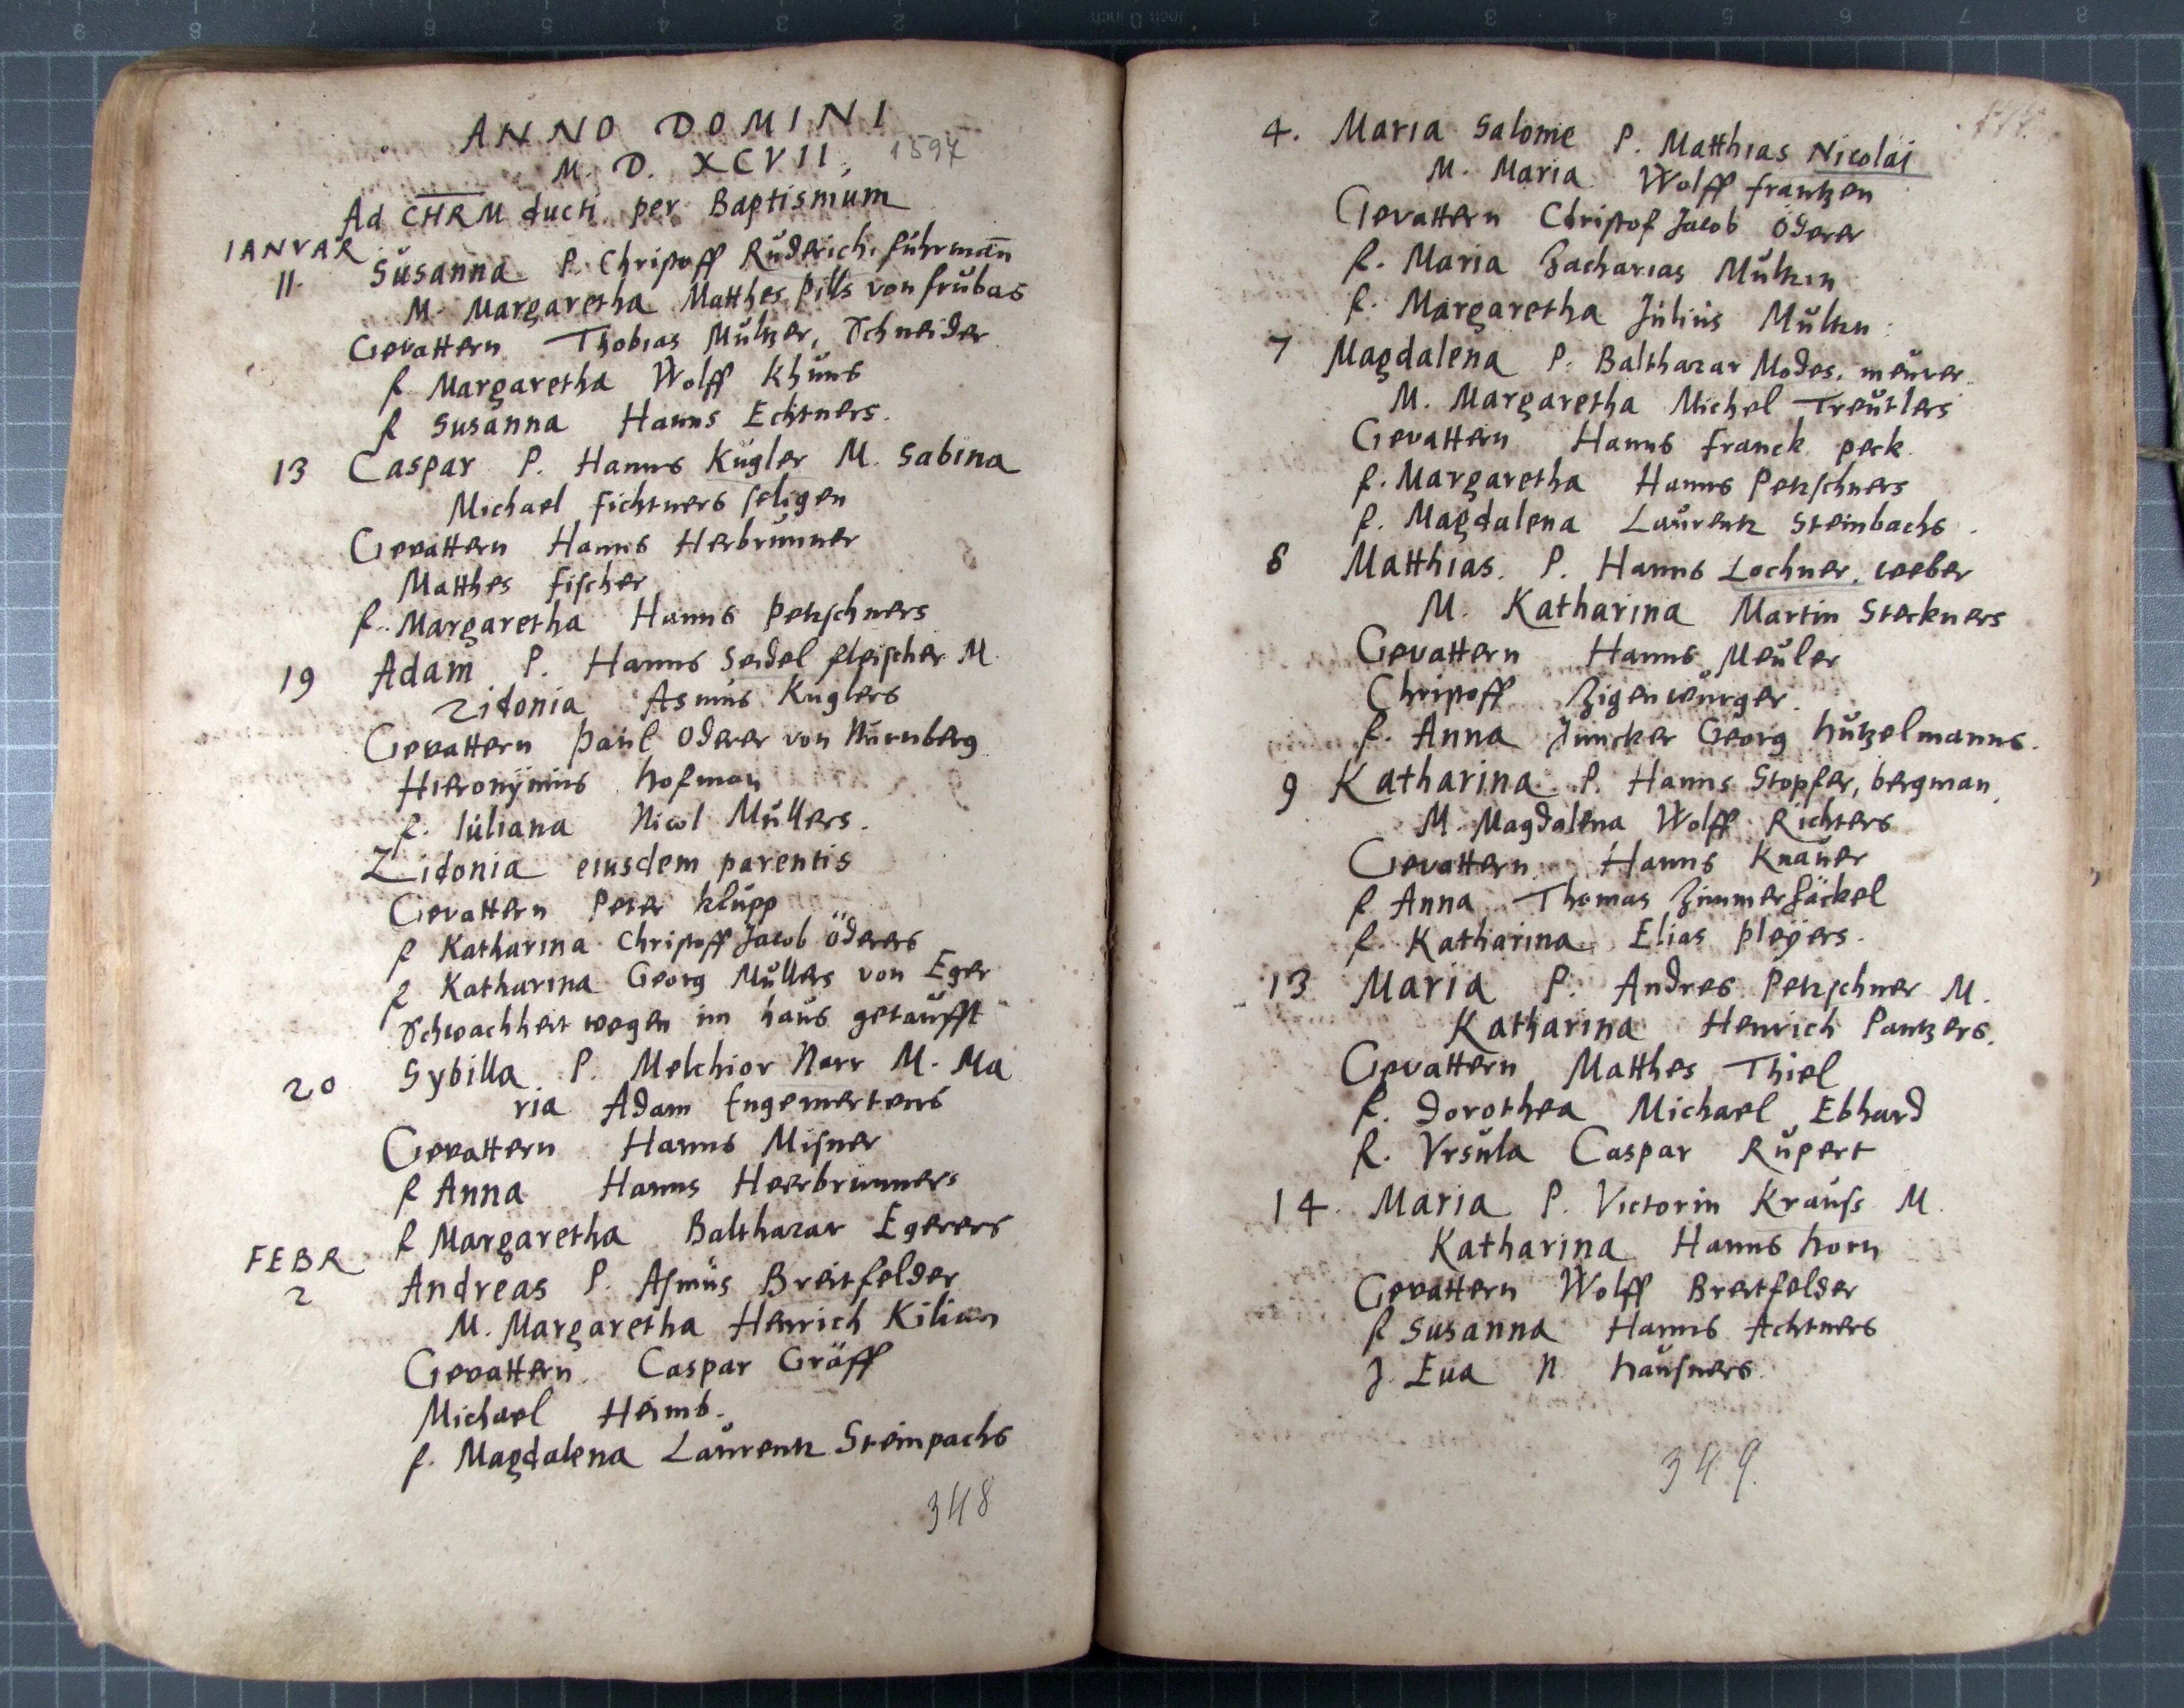 ANNO DOMINI
M. D. XCVII. 1597
Ad CHRM ducti per Baptismum
IANVAR
11. Susanna P. Christoff Ruderich, fuhrman̄
M. Margaretha Matthes Pills von frubas
Gevattern Thobias Multzer, Schneider
f. Margaretha Wolff Khuns
f Susanna Hanns Echtners.
13 Caspar P. Hanns Kugler M. Sabina
Michael Fichtners seligen
Gevattern Hanns Herbrunner
Matthes Fischer
f. Margaretha Hanns Petzschners
19 Adam P. Hanns Seidel fleischer M.
Zidonia Asmus Kuglers
Gevattern Paul Oderer von Nurnberg
Hieronÿmus Hofman
f. Iuliana Nicol Mullers.
Zidonia eiusdem parentis
Gevattern Peter Klupp
f Katharina Christoff Jacob Öderers
f Katharina Georg Mullers von Eger
Schwachheit wegen im haus getaufft
20 Sybilla P. Melchior Narr M. Ma
ria Adam Engemertens
Gevattern Hanns Misner
f Anna Hanns Heerbrunners
f Margaretha Balthazar Egerers
FEBR
2 Andreas P. Asmus Breitfelder
M. Margaretha Henrich Kilian
Gevattern Caspar Gräff
Michael Heimb.
f. Magdalena Laurentz Steinpachs
348
4. Maria Salome P. Matthias Nicolai
M. Maria Wolff frantzen
Gevattern Christof Jacob Öderer
f. Maria Zacharias Multzin
f. Margaretha Julius Multzn
7 Magdalena P. Balthazar Modes, meurer
M. Margaretha Michel Treutlers
Gevattern Hanns Franck peck
f. Margaretha Hanns Petzschners
f. Magdalena Laurentz Steinbachs.
8 Matthias. P. Hanns Lochner, weber
M. Katharina Martin Steckners
Gevattern Hanns Meuler
Christoff Zigenwurger.
f. Anna Juncker Georg Hutzelmanns.
9 Katharina P. Hanns Stopfer, bergman,
M. Magdalena Wolff Richters
Gevattern Hanns Knauer
f Anna Thomas Zimmerhäckel
f. Katharina Elias Pleÿers.
13 Maria P. Andres Petzschner M.
Katharina Henrich Pantzers.
Gevattern Matthes Thiel
f. Dorothea Michael Ebhard
f. Vrsula Caspar Rupert
14. Maria P. Victorin Krauss M.
Katharina Hanns Horn
Gevattern Wolff Breitfelder
f Susanna Hanns Achtners
J. Eua N. Hausners.
349.